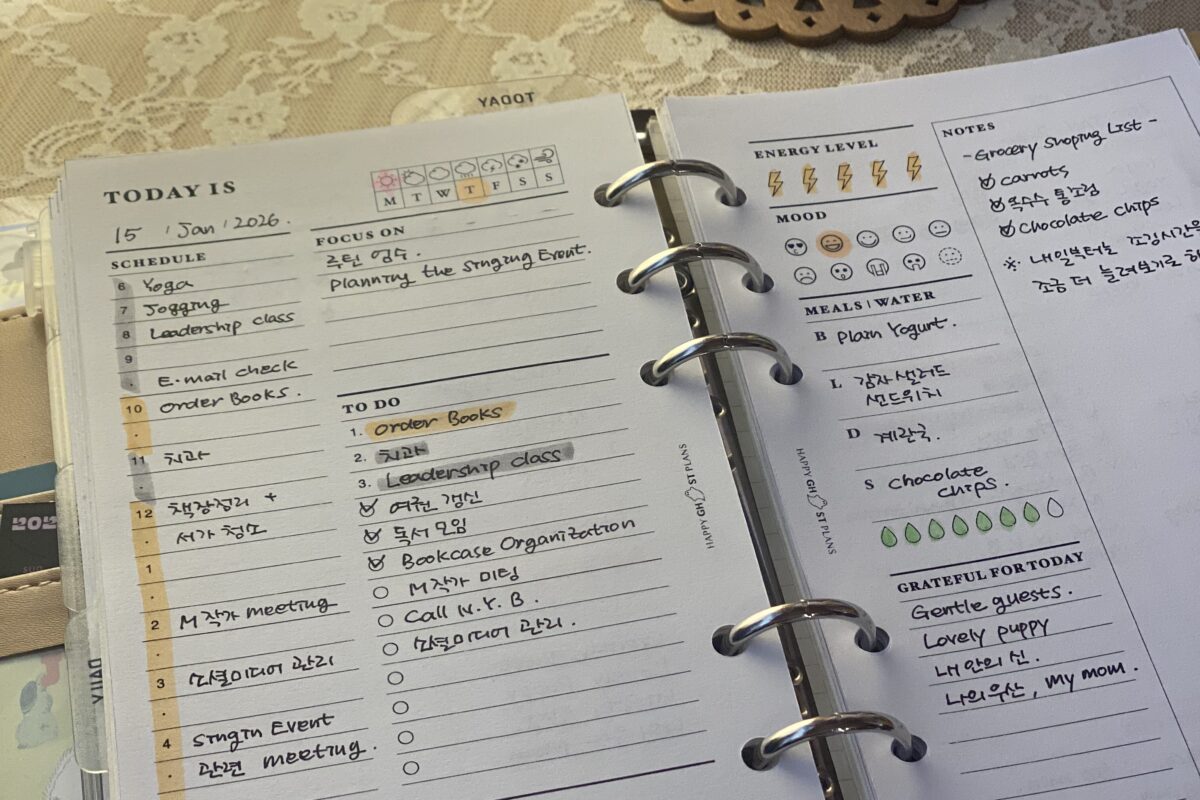 TODAY
TODAY IS
15 Jan 2026.
M T W T F S S
SCHEDULE
6 Yoga
7 Jogging
8 Leadership class
9
E-mail check
10 order Books.
11 치과
12 책장정리 +
서가 청소
1
2 M작가 meeting
3 소셜미디어 관리
4 singin Event
관련 meeting.
FOCUS ON
루틴 엄수.
planning the singing Event.
TO DO
1. order Books
2. 치과
3. Leadership class
여권 갱신
독서모임
Bookcase Organization
M작가 미팅
Call N.Y.B.
소셜미디어 관리.
HAPPY GH ST PLANS
HAPPY GH ST PLANS
DAILY
ENERGY LEVEL
MOOD
MEALS | WATER
B Plain Yogurt.
L 감자샐러드
샌드위치
D 계란국.
S chocolate
chips.
GRATEFUL FOR TODAY
Gentle guests.
Lovely puppy
내 안의 신.
나의우산, my mom.
NOTES
- Grocery Shoping List -
carrots
옥수수 통조림
chocolate chips
※ 내일부터는 조깅시간을
조금 더 늘려보기로